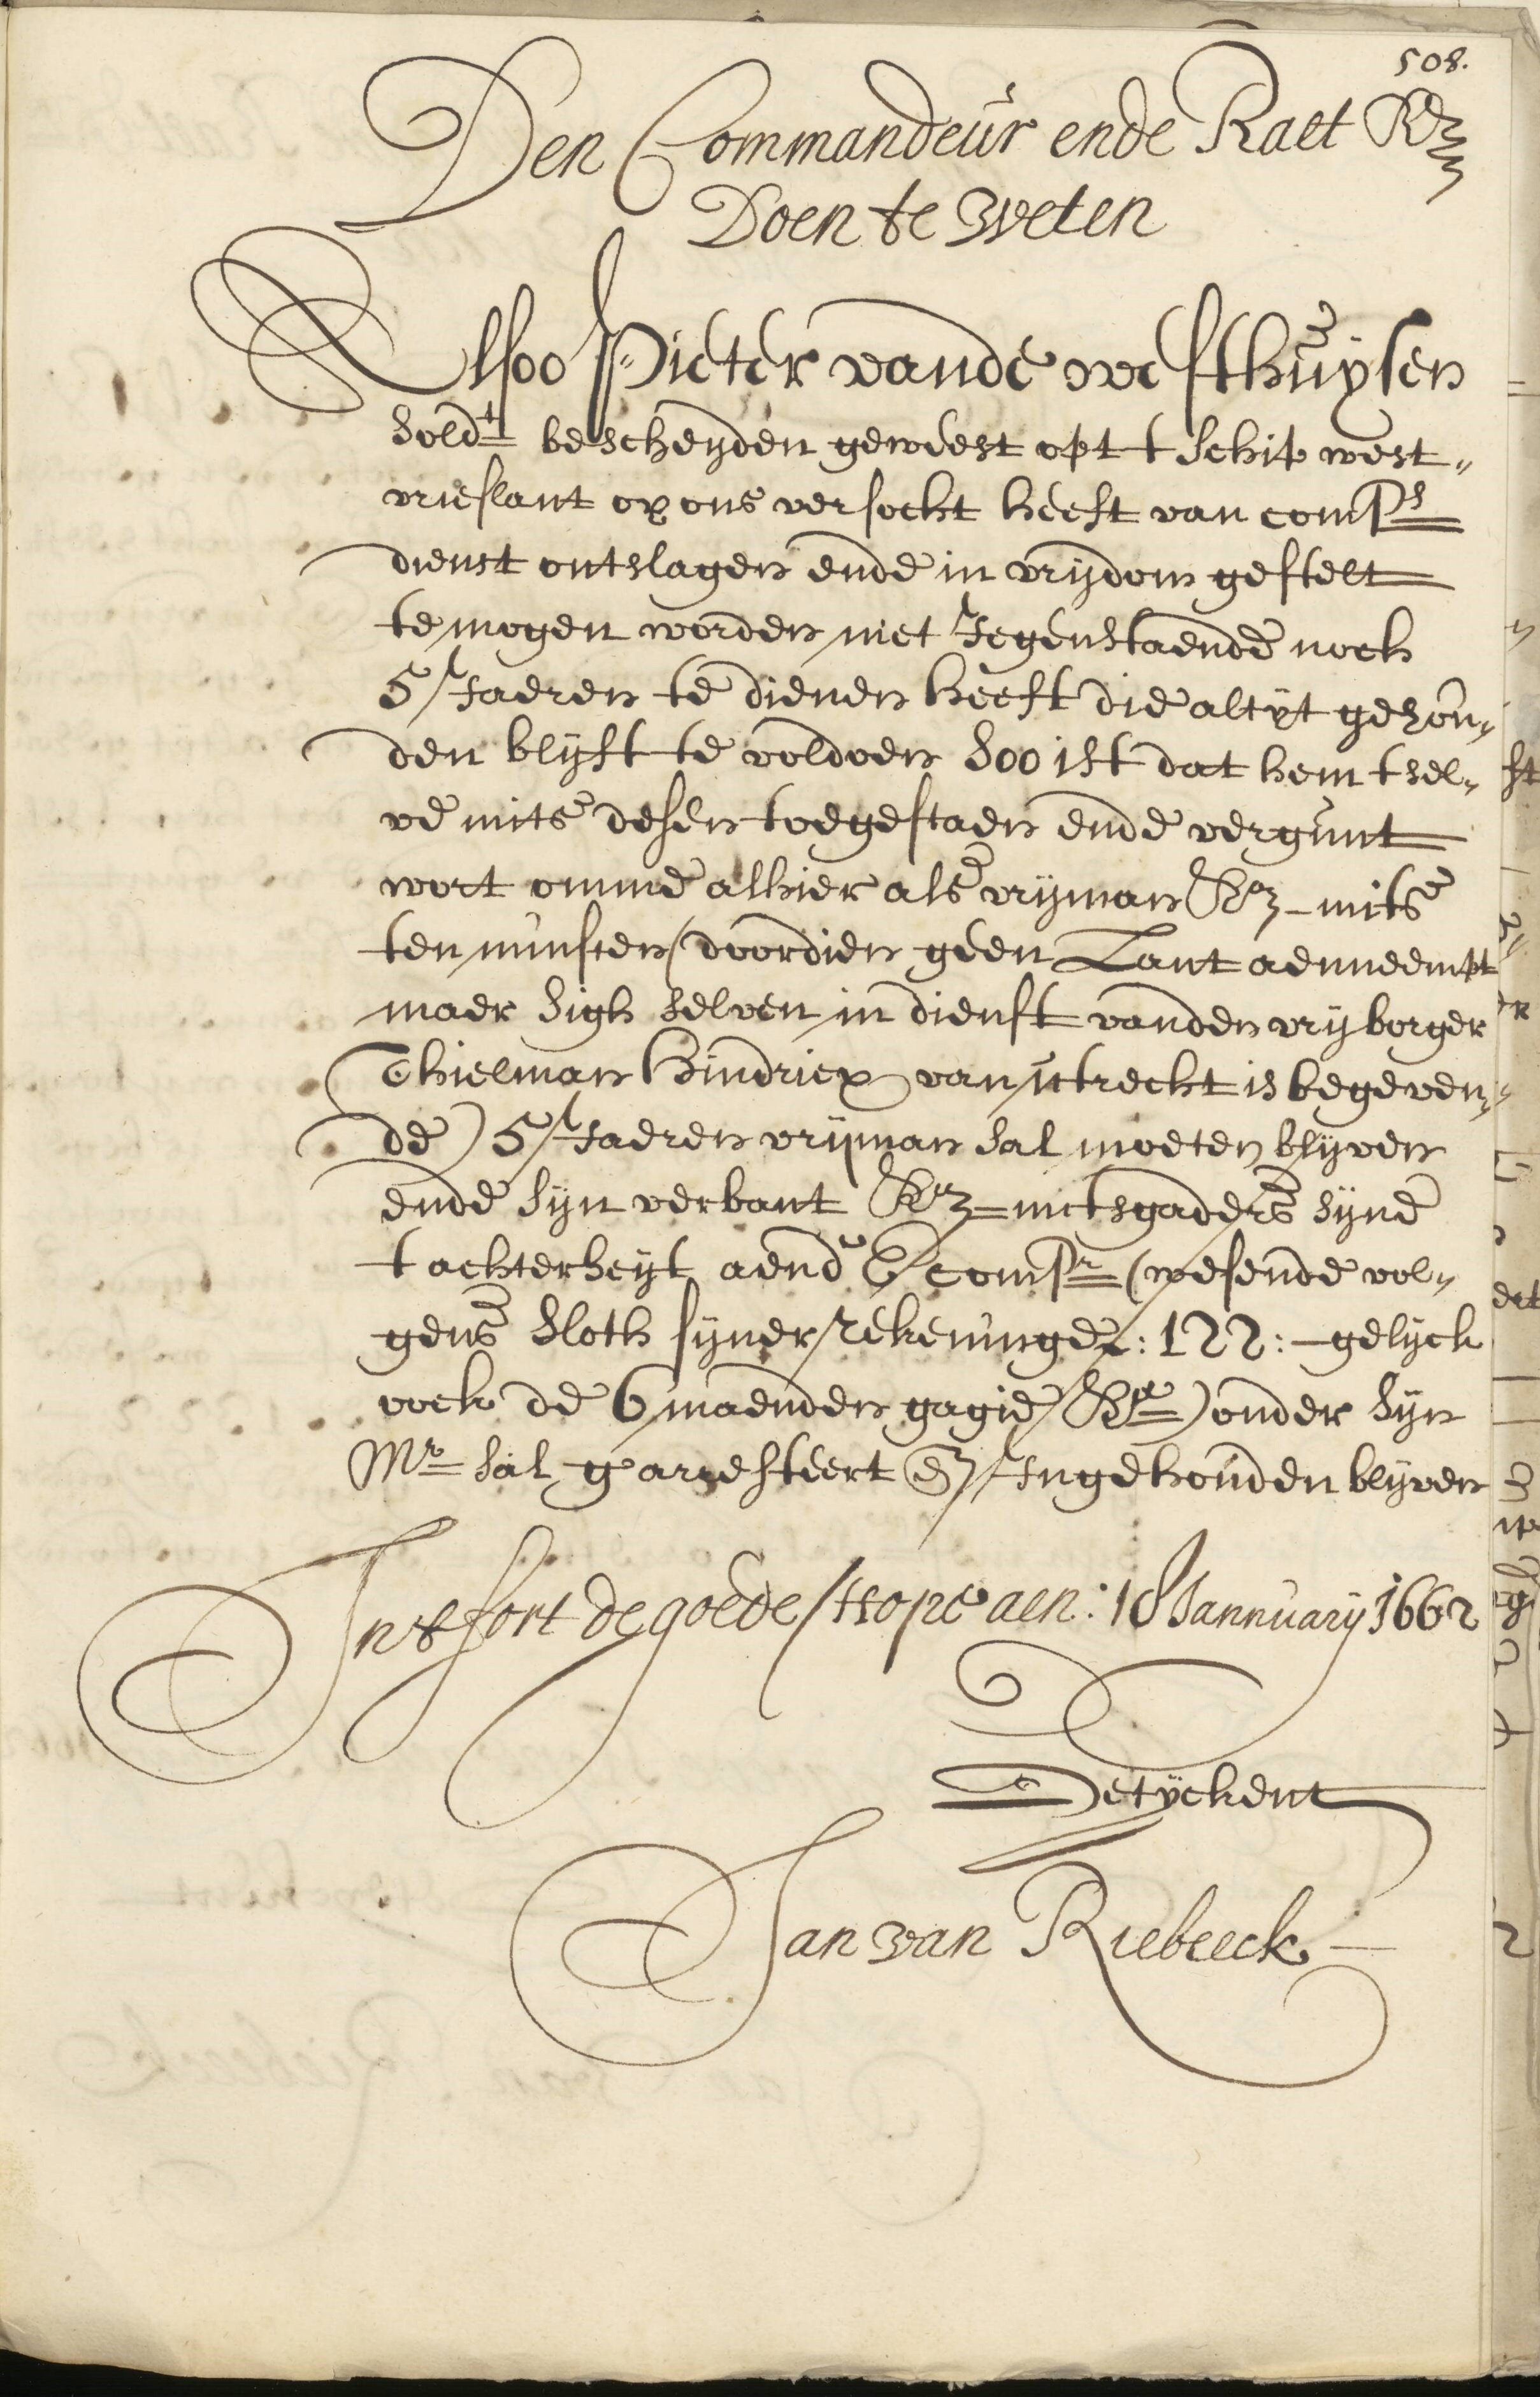 508.
Den Commandeur ende Raet &ra
Doen te weten
Alsoo Pieter vande westhuysen
sold.t bescheyden geweest opt t schip west„
vrieslant op ons versocht heeft van comps
dienst ontslagen ende in vrijdom gestelt
te mogen worden niet Jegenstaende noch
5 Jaeren te dienen heeft die altijt gehou„
den blijft te voldoen soo ist dat hem tsel„
ve mits desen toegestaen ende vergunt
wort omme alhier als vrijman &ra mits
ten minsten (doordien geen Lant aenneempt
maer sigh selven in dienst vanden vrijborger
Thielman Hindricx van utrecht is begeven„
de) 5 Jaeren vrijman sal moeten blijven
ende sijn verbant &ra mitsgaders sijne
t achterheyt aend' E comp.e (wesende vol„
gens sloth sijner rekeninge ƒ: 122: – gelijck
oock de 6 maenden gagie &ra) onder sijn
Mr sal g'arresteert en Ingehouden blijven
In't fort de goede hope aen: 18 Jannuarij 1662
Getyckent
Jan van Riebeeck